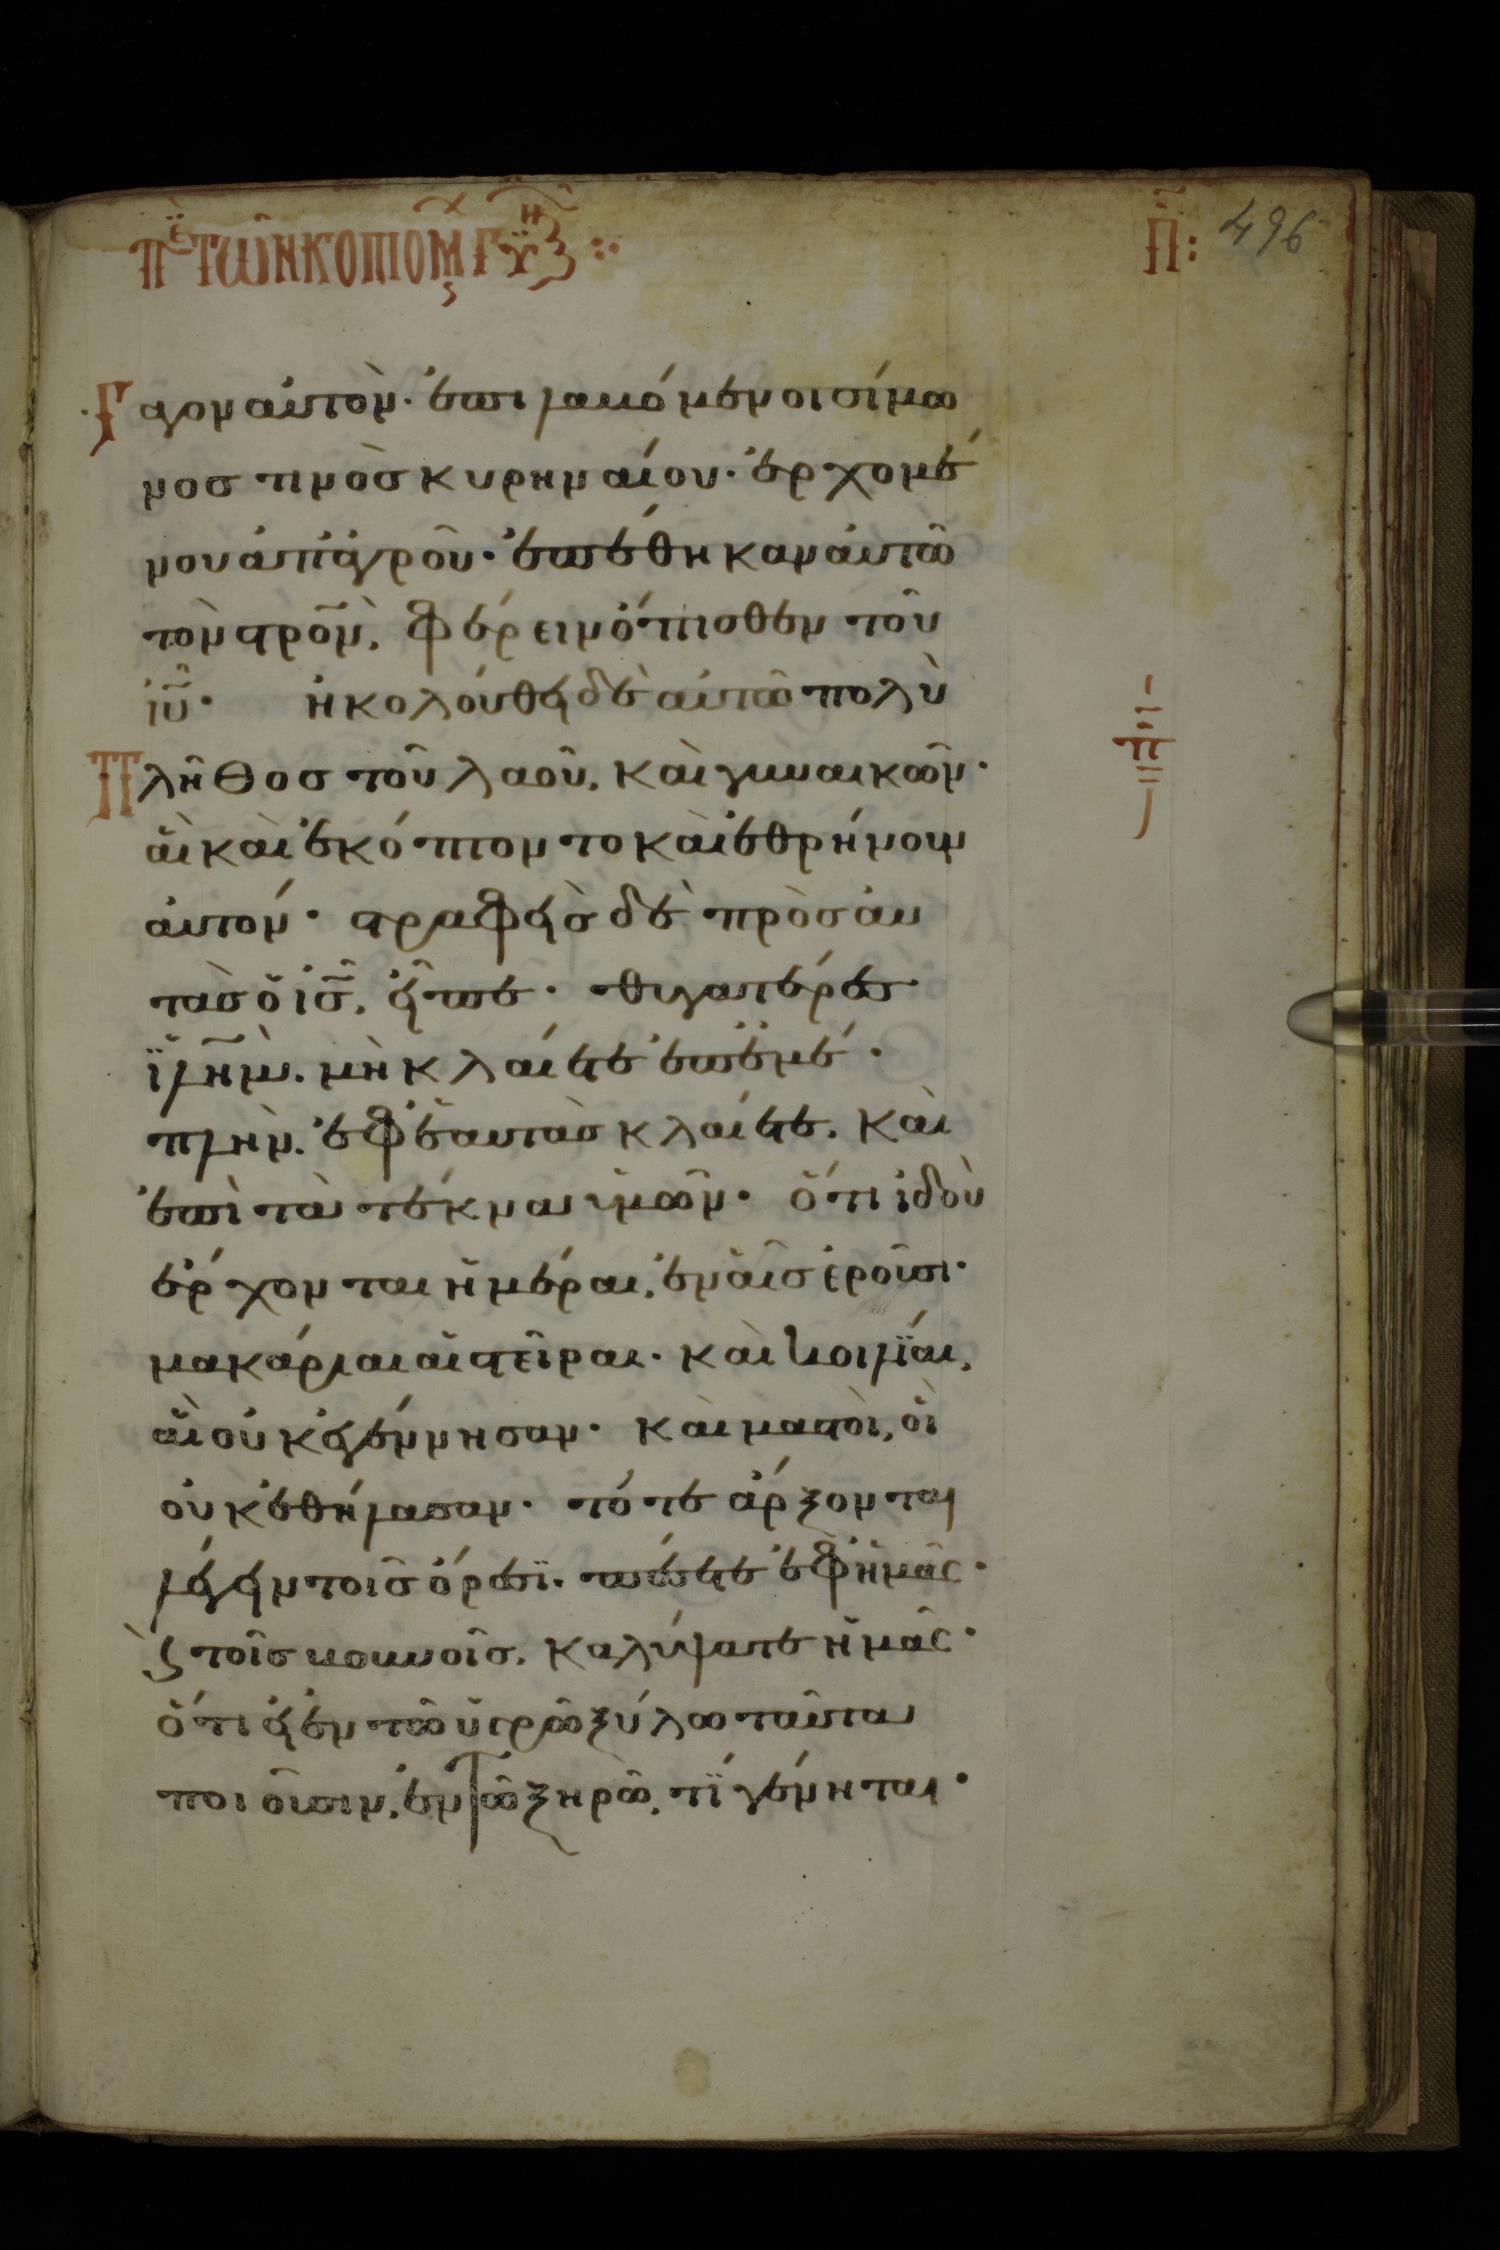 πε τῶν κοπτομ γυναικ πη: 496
γαγον αὐτὸν· ἐπιλαβόμενοι σίμω
νος τινὸς κυρηναίου· ἐρχομέ
νου ἀπ' ἀγροῦ· ἐπέθηκαν αὐτῶ
τὸν στρον, φέρειν ὄπισθεν τοῦ
ιυ· ἠκολούθει δὲ αὐτῶ πολὺ
Πλῆθος τοῦ λαοῦ, καὶ γυναικῶν·
αἳ καὶ ἐκόπτοντο καὶ ἐθρήνουν
αὐτόν· στραφεὶς δὲ πρὸς αὐ
τὰς ὁ ις, εἶπε· θυγατέρες
ϊλημ. μὴ κλαίετε ἐπ' ἐμέ·
πλὴν. ἐφ' ἑαυτὰς κλαίετε, καὶ
ἐπὶ τὰ τέκνα ὑμῶν· ὅτι ἰδοὺ
ἔρχονται ἡμέραι, ἐν αἷς ἐροῦσι·
μακάριαι αἱ στεῖραι· καὶ κοιλίαι,
αἳ οὐκ ἐγέννησαν· καὶ μαστοὶ, οἳ
οὐκ ἐθήλασαν· τότε ἄρξονται
λέγειν τοῖς ὄρεσϊ. πέσετε ἐφ' ἡμᾶς·
ϗ τοῖς βουνοῖς, καλύψατε ἡμᾶς·
ὅτι εἰ ἐν τῶ ὑγρῶ ξύλω ταῦτα
ποιοῦσιν, ἐν τῶ ξηρῶ, τί γένηται·